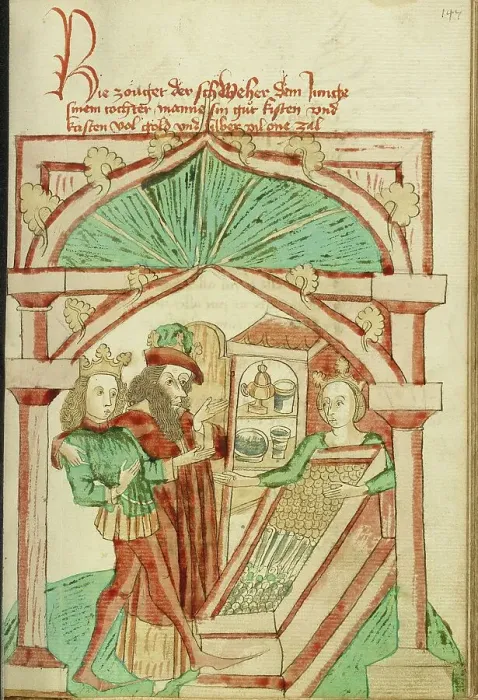 147
Hie zöuget der schweher dem Junge
sinem tochter manne sin gůt kisten vnd
kasten vol gold vnd silber vil one zal